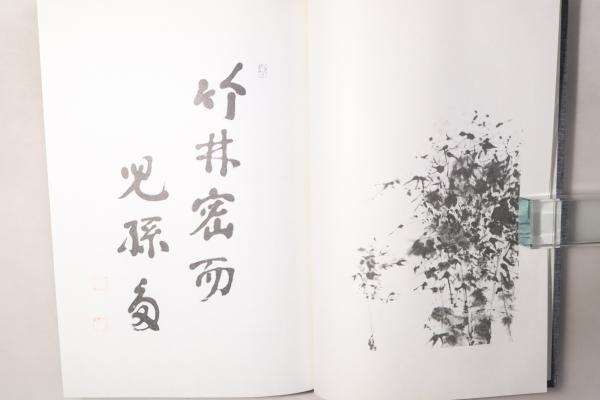 竹林密而
児孫多